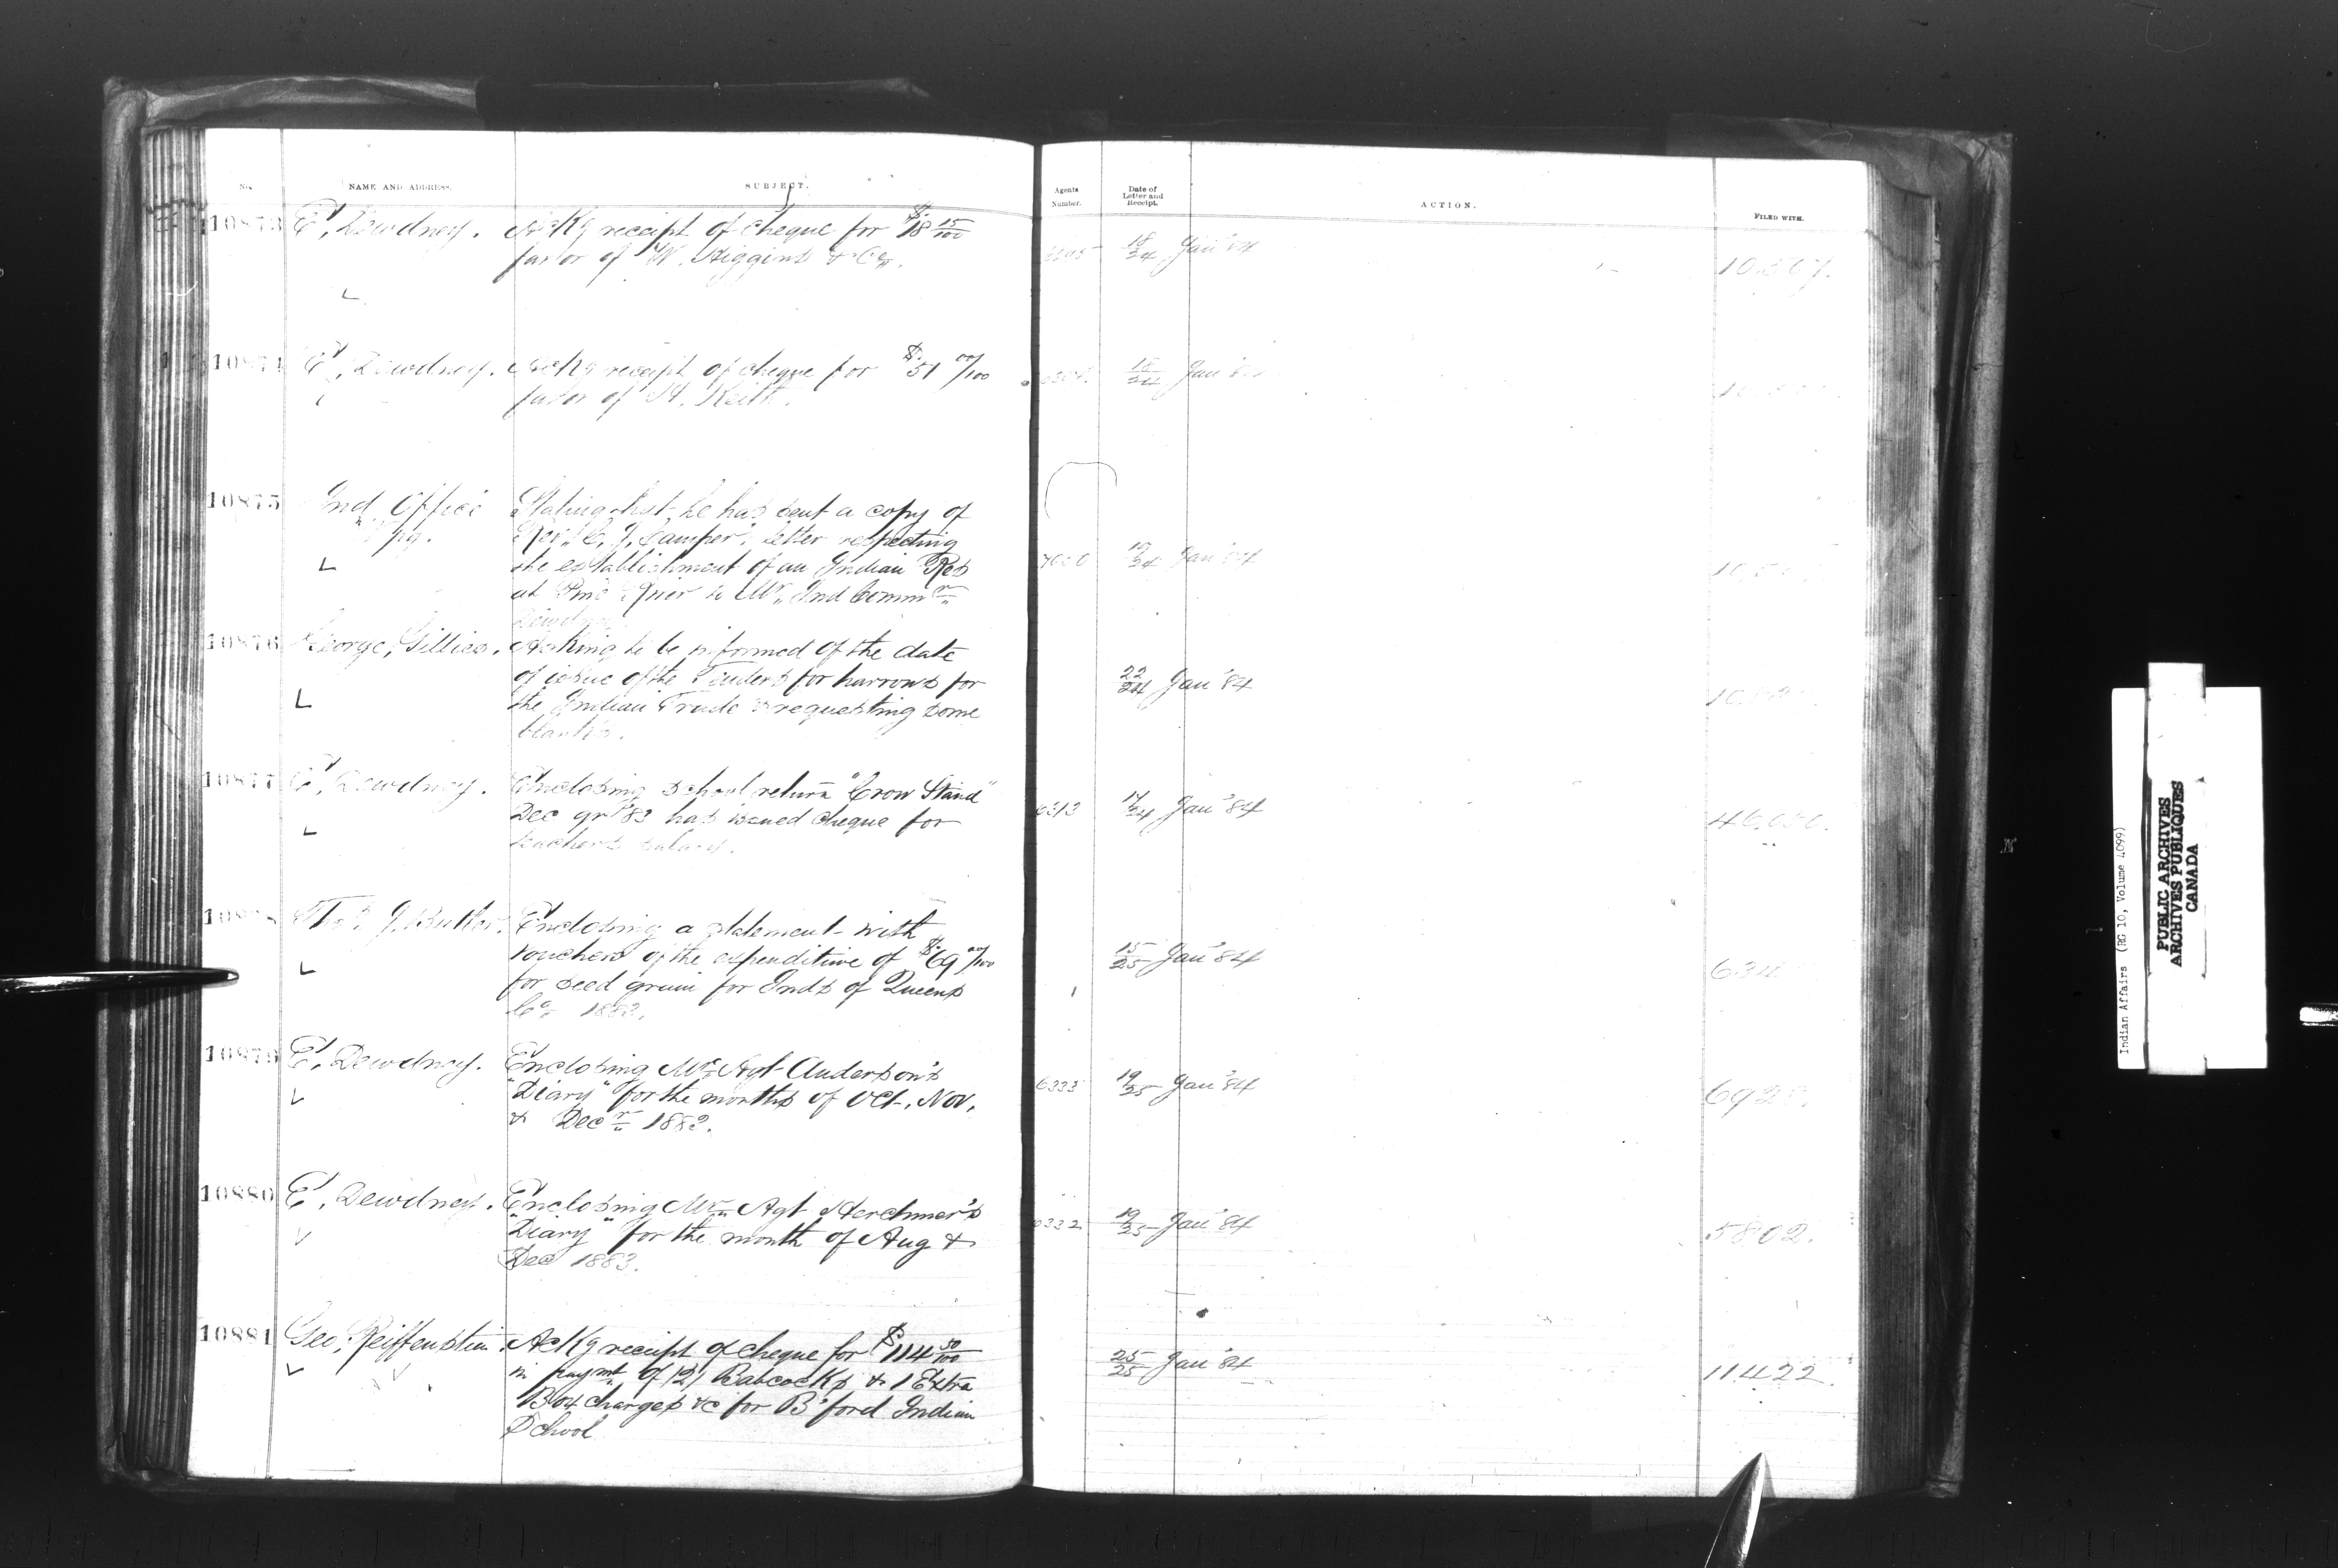 No. NAME AND ADDRESS. SUBJECT. Agents Number. Date of Letter and Receipt. ACTION. FILED WITH.
10873 E. Dewdney. Ackg receipt of cheque for $18 15/100
favor of W. Higgins & Co. 18/24 Jany '84
10874 E. Dewdney. Ackg receipt of cheque for $51 00/100
favor of H. Keith. 18/24 Jany
10875 Ind. Office Stating that he has sent a copy of
Wpg. Letter respecting
the establishment of an Indian Res 19/24 Jany '84
at to Mr. Ind Commr
Dewdney
10876 George Gillies. Asking to be informed of the date
of issue of the Tenders for harrows for 22/24 Jany '84
the Indian Trade & requesting some
blanks.
10877 E. Dewdney. Enclosing school return "Crow Stand"
Dec qr '83 has issued cheque for 6313 17/24 Jany '84
teachers salary.
10878 J. Butler. Enclosing a statement with
vouchers of the expenditure of $69 00/100 15/25 Jany '84
for seed grain for Inds of Queens
Co. 1883.
10879 E. Dewdney. Enclosing Mr. Agt Anderson's
"Diary" for the months of Oct, Nov, 6333 19/25 Jany '84
& Decr 1883.
10880 E. Dewdney. Enclosing Mr. Agt Herchmer's
"Diary" for the month of Aug & 6332 19/25 Jany '84 5802.
Dec 1883.
10881 Geo. Reiffenstein. Ackg receipt of cheque for $114 50/100
in paymt of 12 Babcocks & 1 Extra 25/25 Jany '84 11422.
Box charges &c for B'ford Indian
School
Indian Affairs (RG 10, Volume 4099)
PUBLIC ARCHIVES
ARCHIVES PUBLIQUES
CANADA